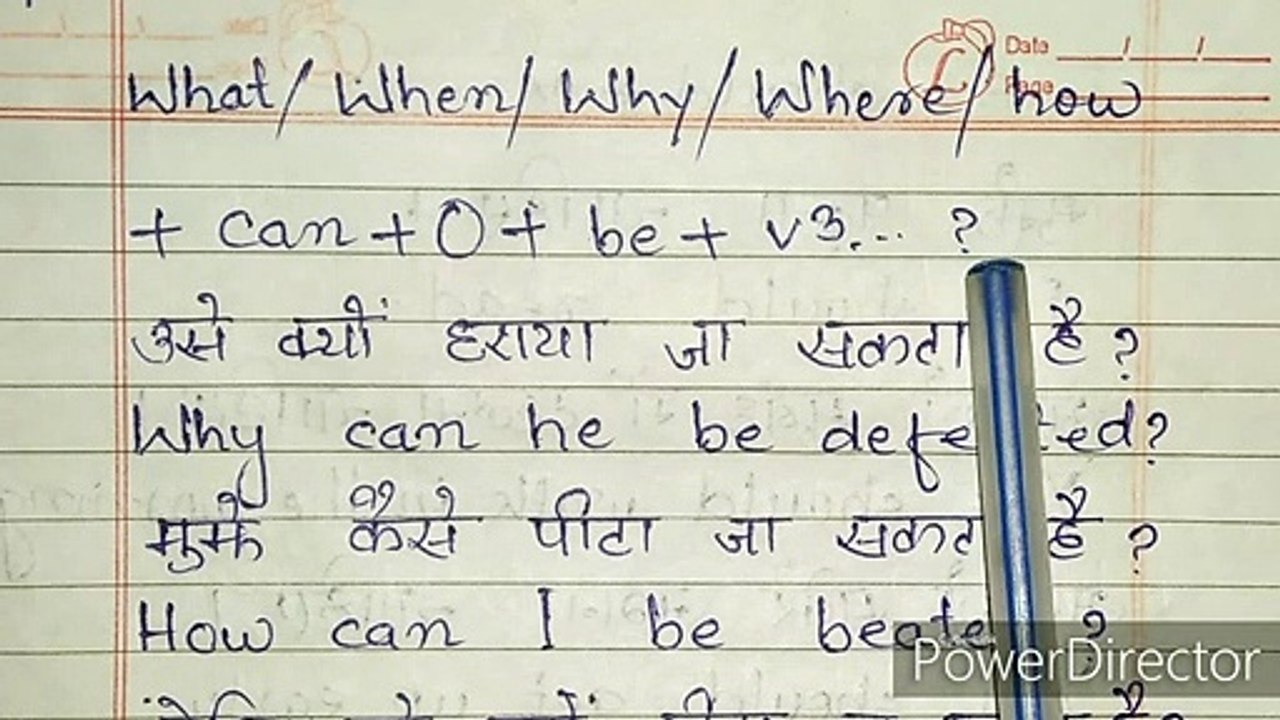 Date / /
Page
What/ When/ Why/ Where/ how
+ can + O + be + v3... ?
उसे क्यों हराया जा सकता है ?
Why can he be ?
मुझे कैसे पीटा जा सकता है ?
How can I be ?
PowerDirector